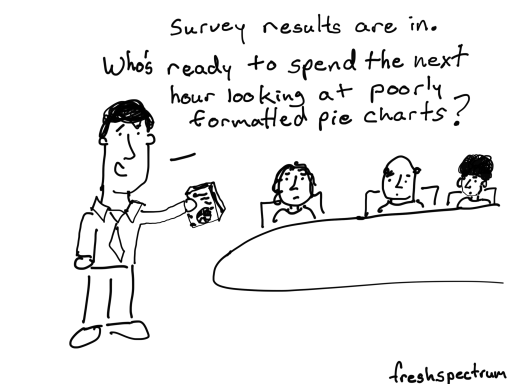 Survey results are in.
Who's ready to spend the next
hour looking at poorly
formatted pie charts?
freshspectrum